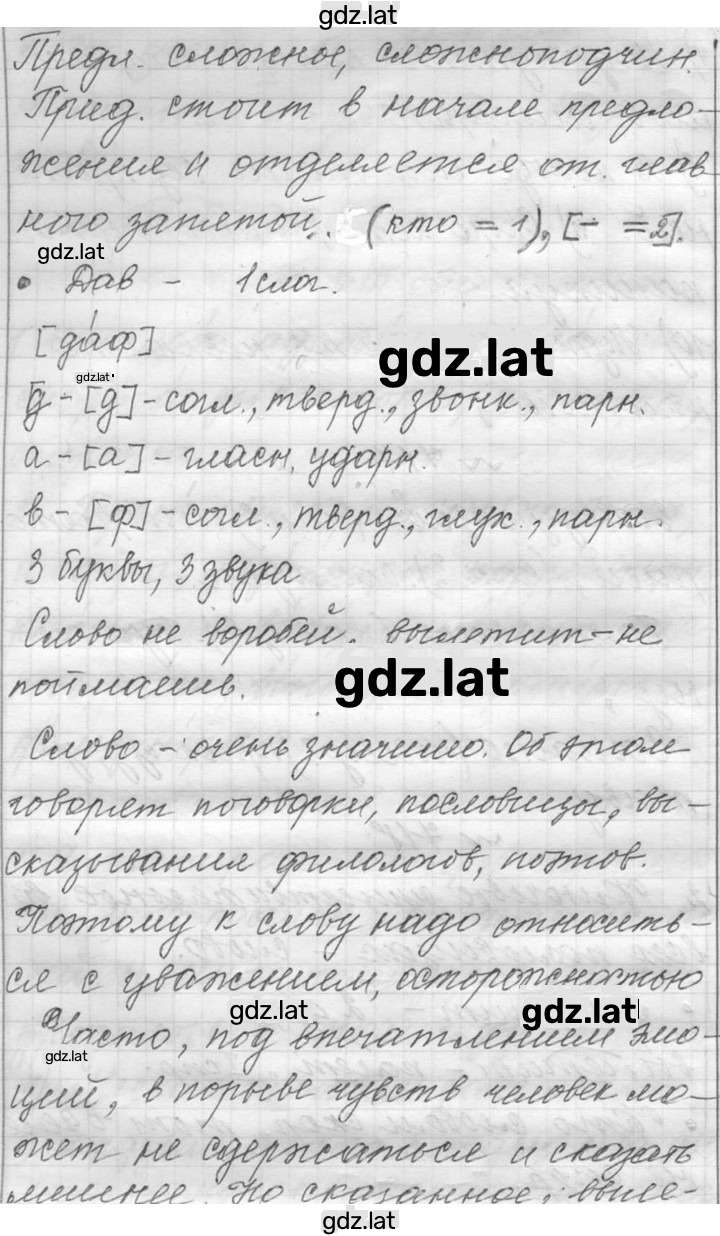 gdz.lat
Предл. сложное, сложноподчин.
Прид. стоит в начале предло-
жения и отделяется от глав
ного запятой. (кто = 1), [- = 2].
gdz.lat
• Дав - 1 слог.
[да́ф]
gdz.lat
gdz.lat
д - [д] - согл., тверд., звонк., парн.
а - [а] - гласн, ударн.
в - [ф] - согл., тверд., глух., парн.
3 буквы, 3 звука
Слово не воробей. вылетит - не
поймаешь.
gdz.lat
Слово - очень значимо. Об этом
говорят поговорки, пословицы, вы-
сказывания филологов, поэтов.
Поэтому к слову надо относить-
ся с уважением, осторожностью
gdz.lat
gdz.lat
Часто, под впечатлением эмо-
gdz.lat
ций, в порыве чувств человек мо-
жет не сдержаться и сказать
лишнее. Но сказанное, выле-
gdz.lat